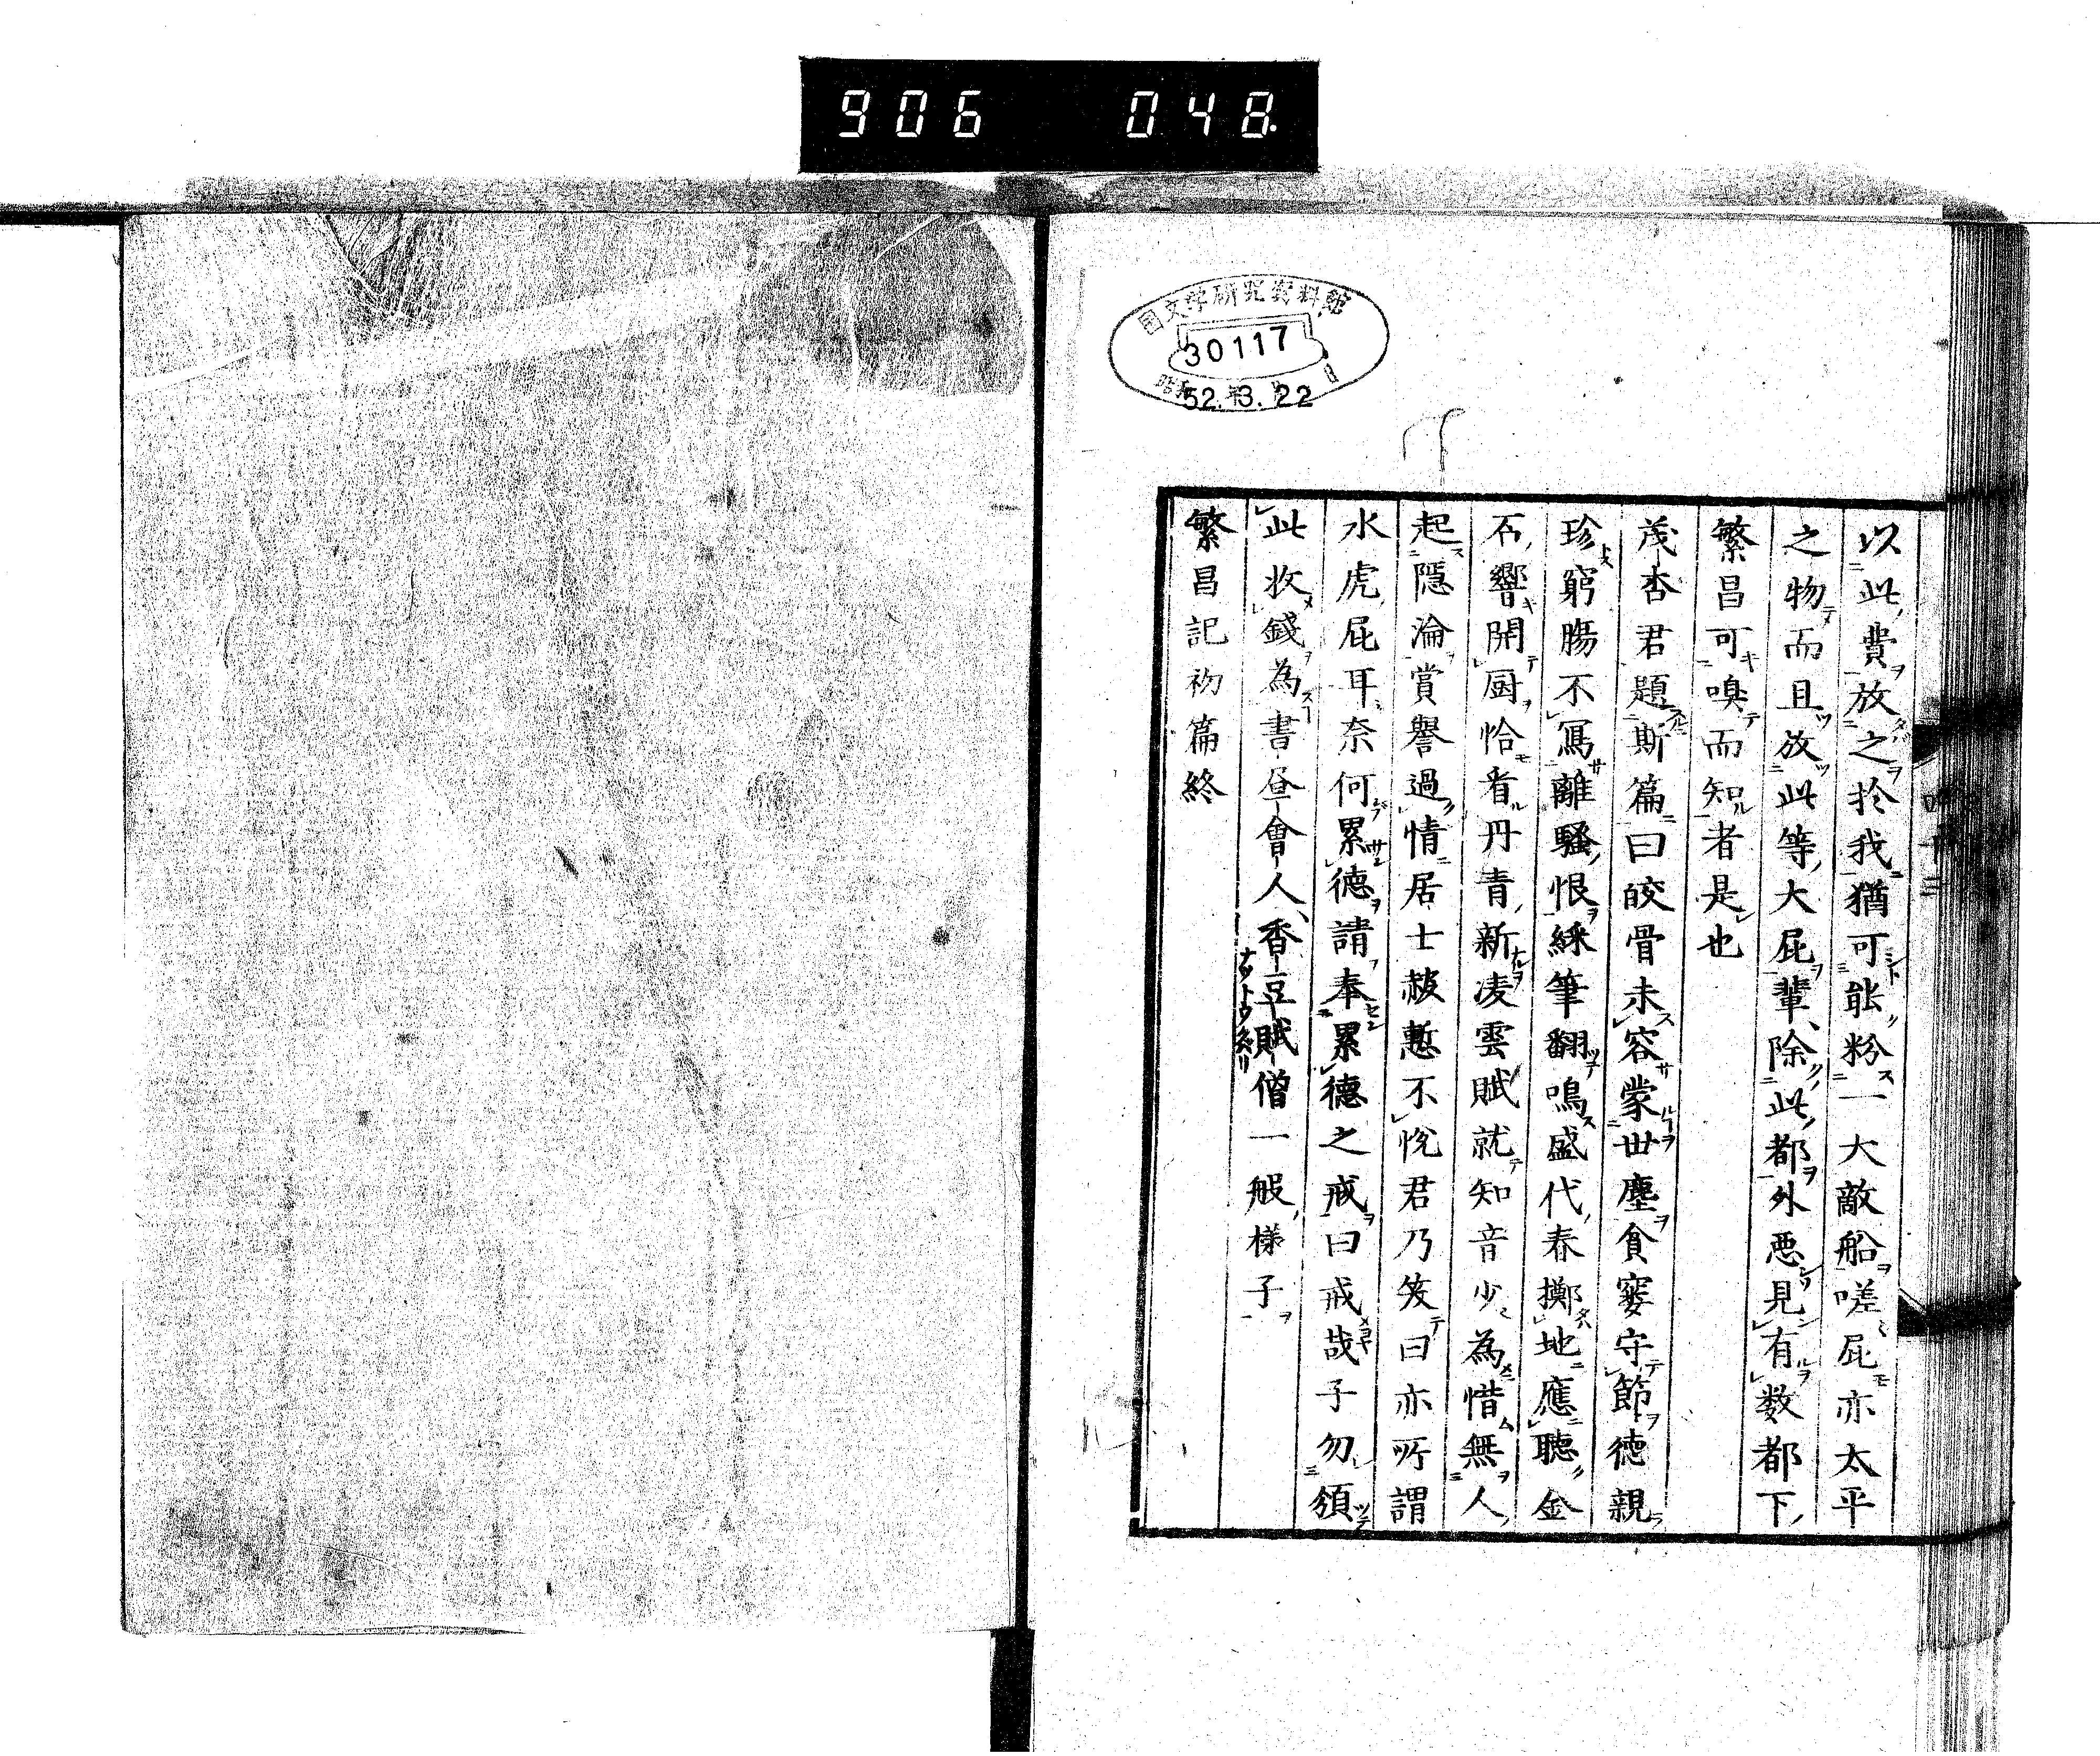 906 048.
国文学研究資料館
30117
昭和 52.年3.月22日
以此費放之於我猶可能粉一大敵船嗟屁亦太平
之物而且放此等大屁輩除此都外悪見有数都下
繁昌可嗅而知者是也
茂杏君題斯篇曰皎骨未容蒙世塵貪寠守節徳親
珍窮腸不寫離騒恨綵筆翻鳴盛代春擲地應聴金
石響開厨恰看丹青新凌雲賦就知音少為惜無人
起隠淪賞譽過情居士赧慙不悦君乃笑曰亦所謂
水虎屁耳奈何累徳請奉累德之戒曰戒哉子勿頷
此收錢為書昼會人香豆賦僧一般様子
ナットウクバリ
繁昌記初篇終